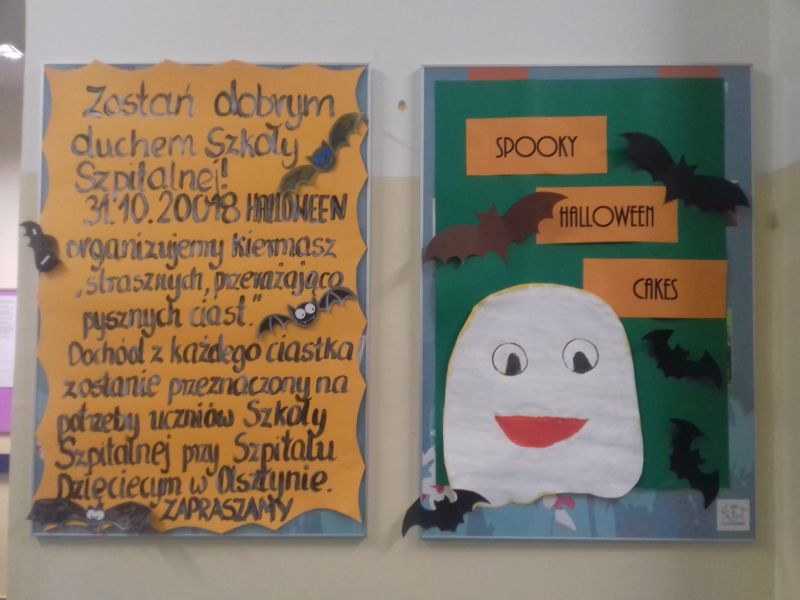 Zostań dobrym
duchem Szkoły
Szpitalnej!
31.10.20018 HALLOWEEN
organizujemy kiermasz
„strasznych, przerażająco
pysznych ciast."
Dochód z każdego ciastka
zostanie przeznaczony na
potrzeby uczniów Szkoły
Szpitalnej przy Szpitalu
Dziecięcym w Olsztynie.
ZAPRASZAMY
SPOOKY
HALLOWEEN
CAKES